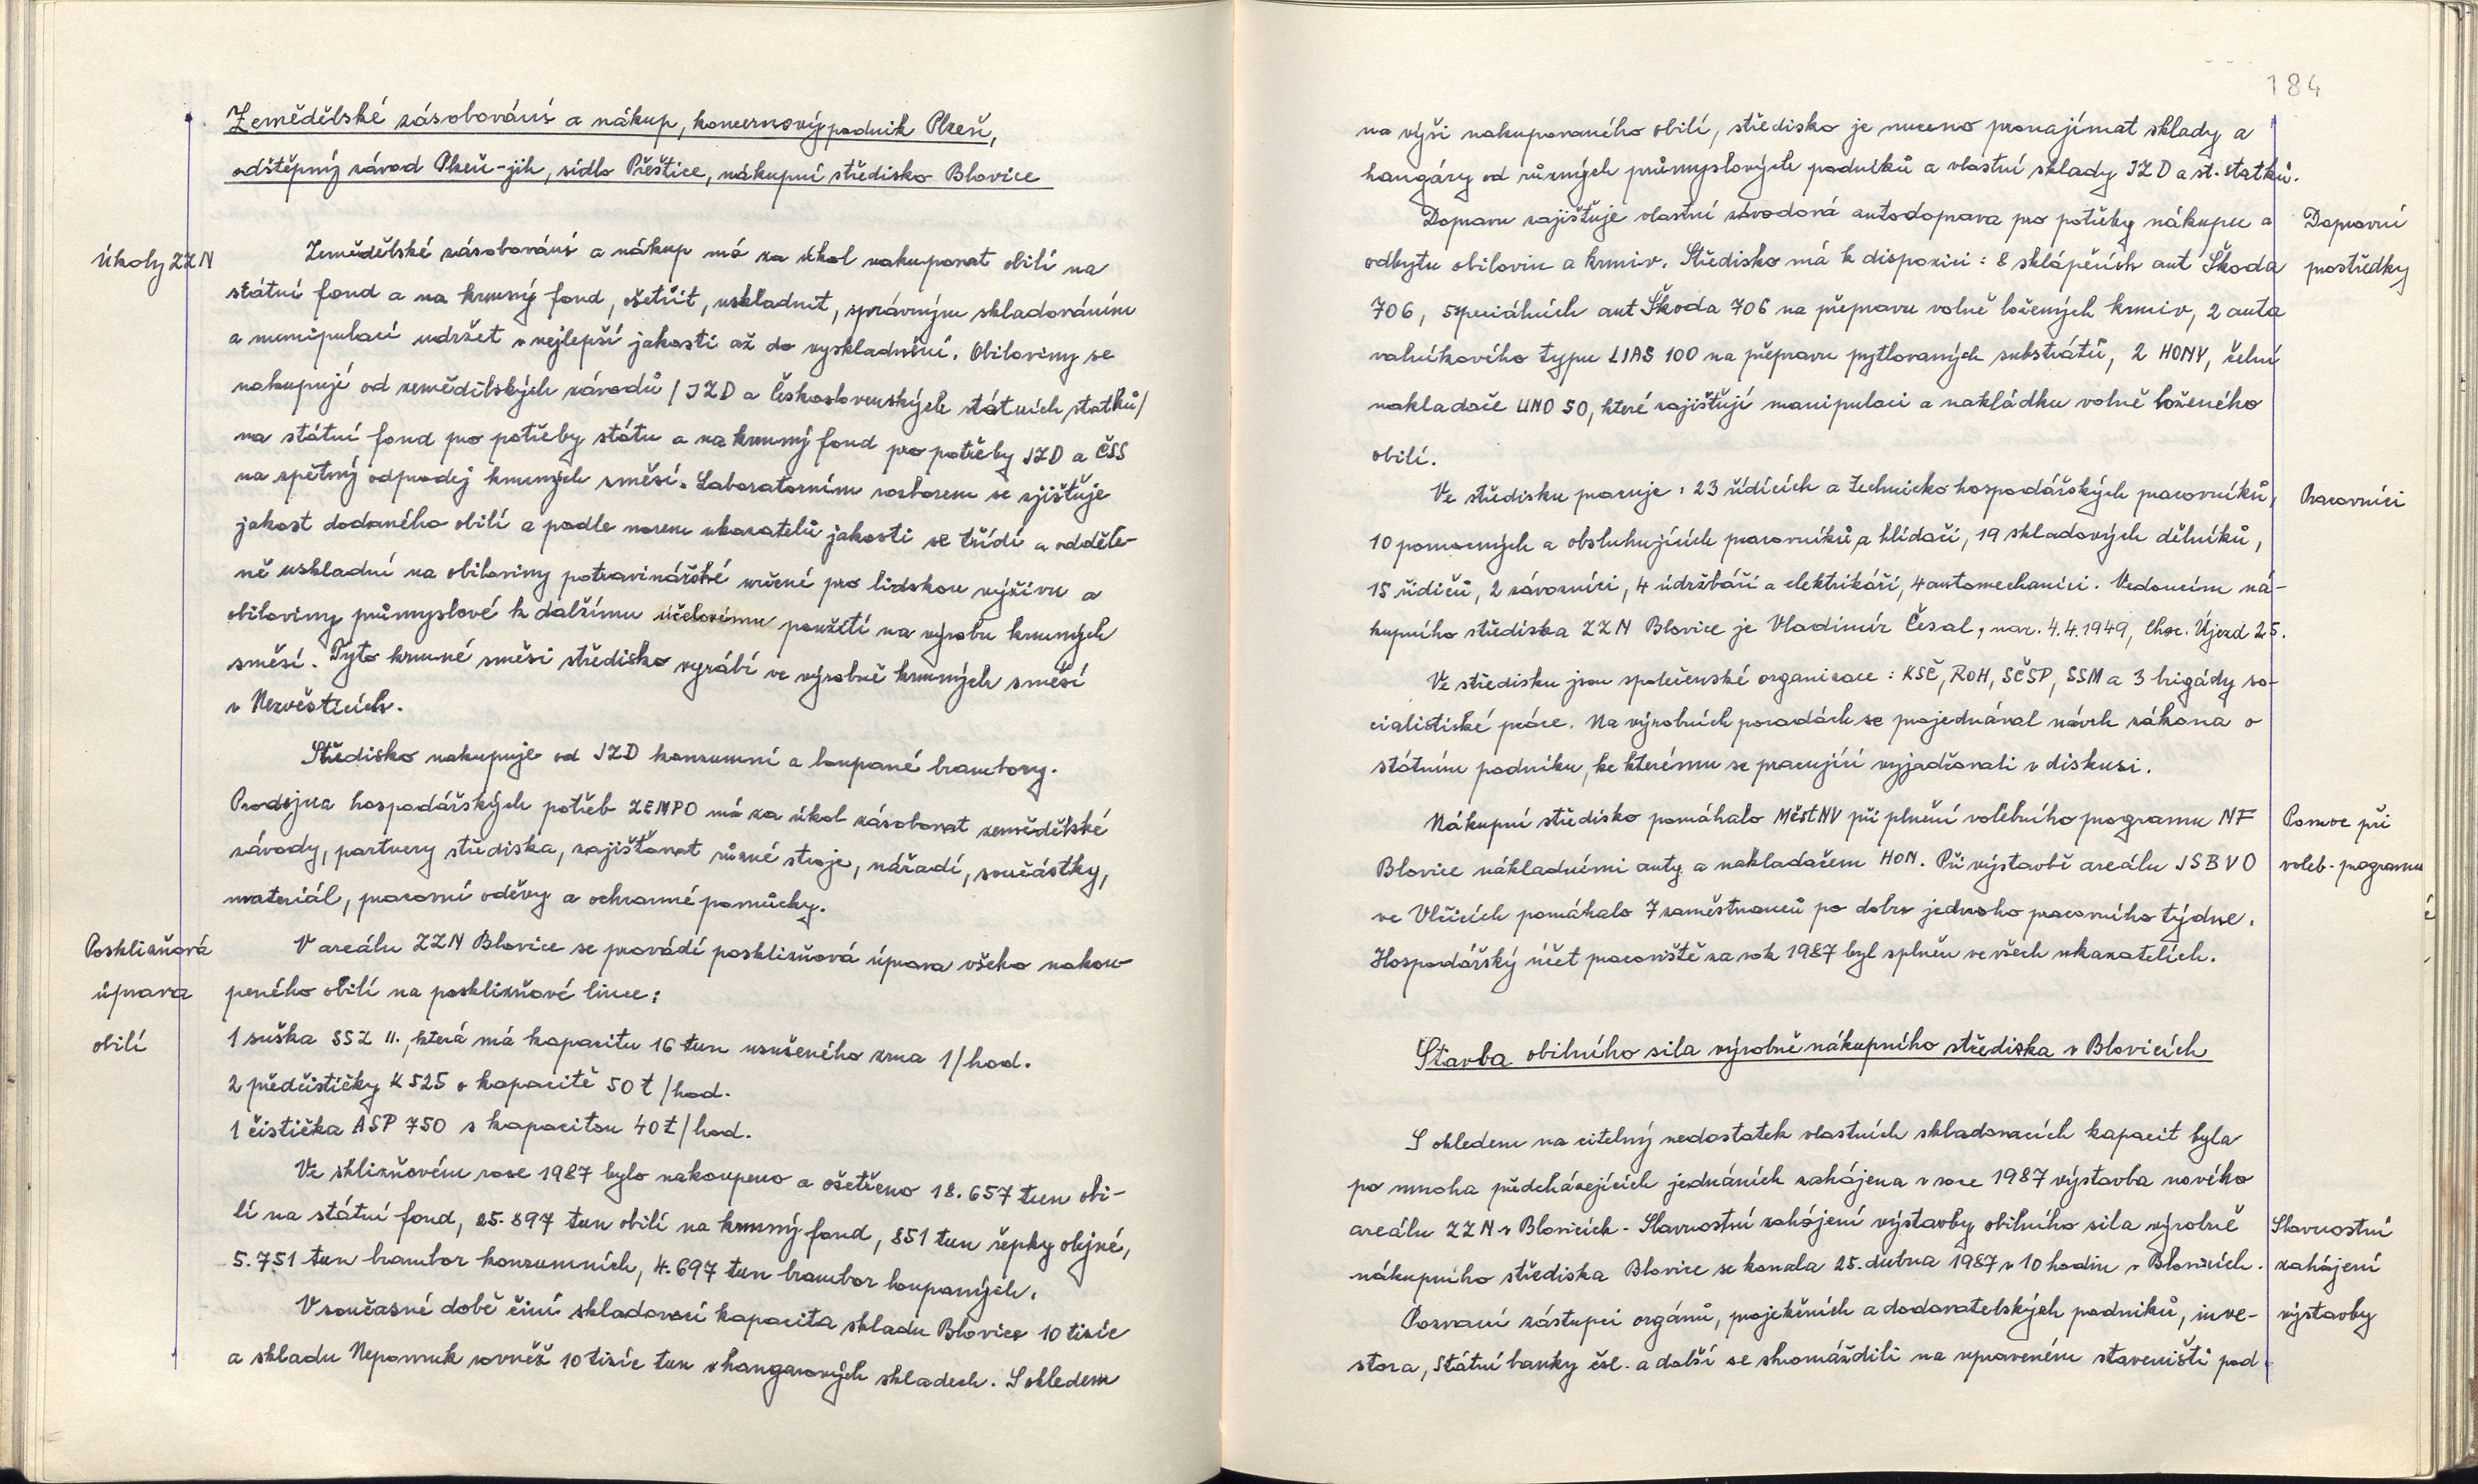 Zemědělské zásobování a nákup, koncernový podnik Plzeň,
odštěpný závod Plzeň-jih, sídlo Přeštice, nákupní středisko Blovice
Úkoly ZZN
Zemědělské zásobování a nákup má za úkol nakupovat obilí na
státní fond a na krmný fond, ošetřit, uskladnit, správným skladováním
a munipulací udržet v nejlepší jakosti až do vyskladnění. Obiloviny se
nakupují od zemědělských závodů /JZD a Československých státních statků/
na státní fond pro potřeby státu a na krmný fond pro potřeby JZD a ČSS
na zpětný odprodej krmných směsí. Laboratorním rozborem se zjišťuje
jakost dodaného obilí a podle norem ukazatelů jakosti se třídí a odděle-
ně uskladní na obiloviny potravinářské určené pro lidskou výživu a
obiloviny průmyslové k dalšímu účelovému použití na výrobu krmných
směsí. Tyto krmné směsi středisko vyrábí ve výrobně krmných směsí
v Nezvěsticích.
Středisko nakupuje od JZD konzumní a loupané brambory.
Prodejna hospodářských potřeb ZEMPO má za úkol zásobovat zemědělské
závody, partnery střediska, zajišťovat různé stroje, nářadí, součástky,
materiál, pracovní oděvy a ochranné pomůcky.
Posklizňová
úprava
obilí
V areálu ZZN Blovice se provádí posklizňová úprava všeho nakou-
peného obilí na posklizňové lince:
1 suška SSZ II., která má kapacitu 16 tun usušeného zrna 1/hod.
2 předčističky K 525 o kapacitě 50 t/hod.
1 čistička ASP 750 s kapacitou 40 t/hod.
Ve sklizňovém roce 1987 bylo nakoupeno a ošetřeno 18.657 tun obi-
lí na státní fond, 25.897 tun obilí na krmný fond, 851 tun řepky olejné,
5.751 tun brambor konzumních, 4.697 tun brambor loupaných.
V současné době činí skladovací kapacita skladu Blovice 10 tisíc
a skladu Nepomuk rovněž 10 tisíc tun v hangarových skladech. S ohledem
184
na výši nakupovaného obilí, středisko je nuceno pronajímat sklady a
hangáry od různých průmyslových podniků a vlastní sklady JZD a st. statků.
Dopravní
prostředky
Dopravu zajišťuje vlastní závodová autodoprava pro potřeby nákupu a
odbytu obilovin a krmiv. Středisko má k dispozici: 8 sklápěcích aut Škoda
706, 5 speciálních aut Škoda 706 na přepravu volně ložených krmiv, 2 auta
valníkového typu LIAS 100 na přepravu pytlovaných substrátů, 2 HONY, čelní
nakladače UNO 50, které zajišťují manipulaci a nakládku volně loženého
obilí.
Pracovníci
Ve středisku pracuje: 23 řídících a technicko hospodářských pracovníků,
10 pomocných a obsluhujících pracovníků a hlídačí, 19 skladových dělníků,
15 řidičů, 2 závozníci, 4 údržbáři a elektrikáři, 4 automechanici. Vedoucím ná-
kupního střediska ZZN Blovice je Vladimír Česal, nar. 4.4.1949, Choc. Újezd 25.
Ve středisku jsou společenské organizace: KSČ, ROH, SČSP, SSM a 3 brigády so-
cialistické práce. Na výrobních poradách se projednával návrh zákona o
státním podniku, ke kterému se pracující vyjadřovali v diskusi.
Pomoc při
voleb. programu
Nákupní středisko pomáhalo MěstNV při plnění volebního programu NF
Blovice nákladními auty a nakladačem HON. Při výstavbě areálu JSBVO
ve Vlčicích pomáhalo 7 zaměstnanců po dobu jednoho pracovního týdne.
Hospodářský účet pracoviště za rok 1987 byl splněn ve všech ukazatelích.
Stavba obilního sila výrobně nákupního střediska v Blovicích
S ohledem na citelný nedostatek vlastních skladovacích kapacit byla
po mnoha předcházejících jednáních zahájena v roce 1987 výstavba nového
areálu ZZN v Blovicích. Slavnostní zahájení výstavby obilního sila výrobně
nákupního střediska Blovice se konala 25. dubna 1987 v 10 hodin v Blovicích.
Slavnostní
zahájení
výstavby
Pozvaní zástupci orgánů, projekčních a dodavatelských podniků, inve-
stora, Státní banky čsl. a další se shromáždili na upraveném staveništi pod